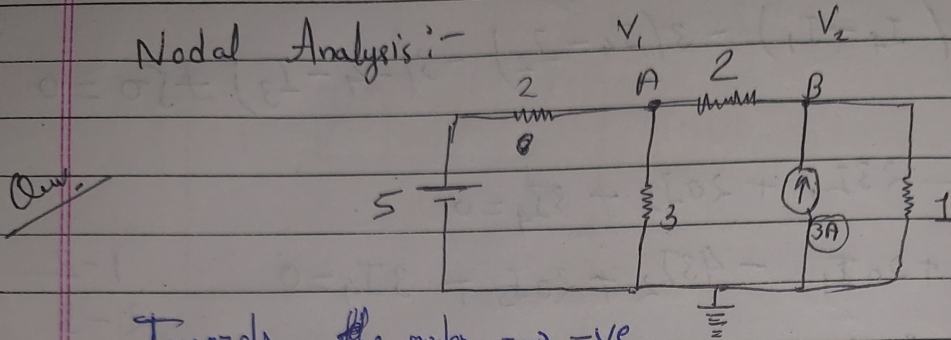 Nodal Analysis :-
V₁ V₂
2 A 2 B
Que.
5 3 3A 1
node → -ve